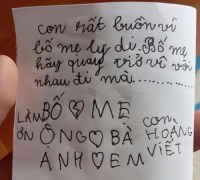 con rất buồn vì
bố mẹ ly dị. Bố mẹ
hãy quay trở về với
nhau đi mà..........
LÀM BỐ ♡ MẸ CON
ƠN ÔNG ♡ BÀ HOÀNG
ANH ♡ EM VIỆT